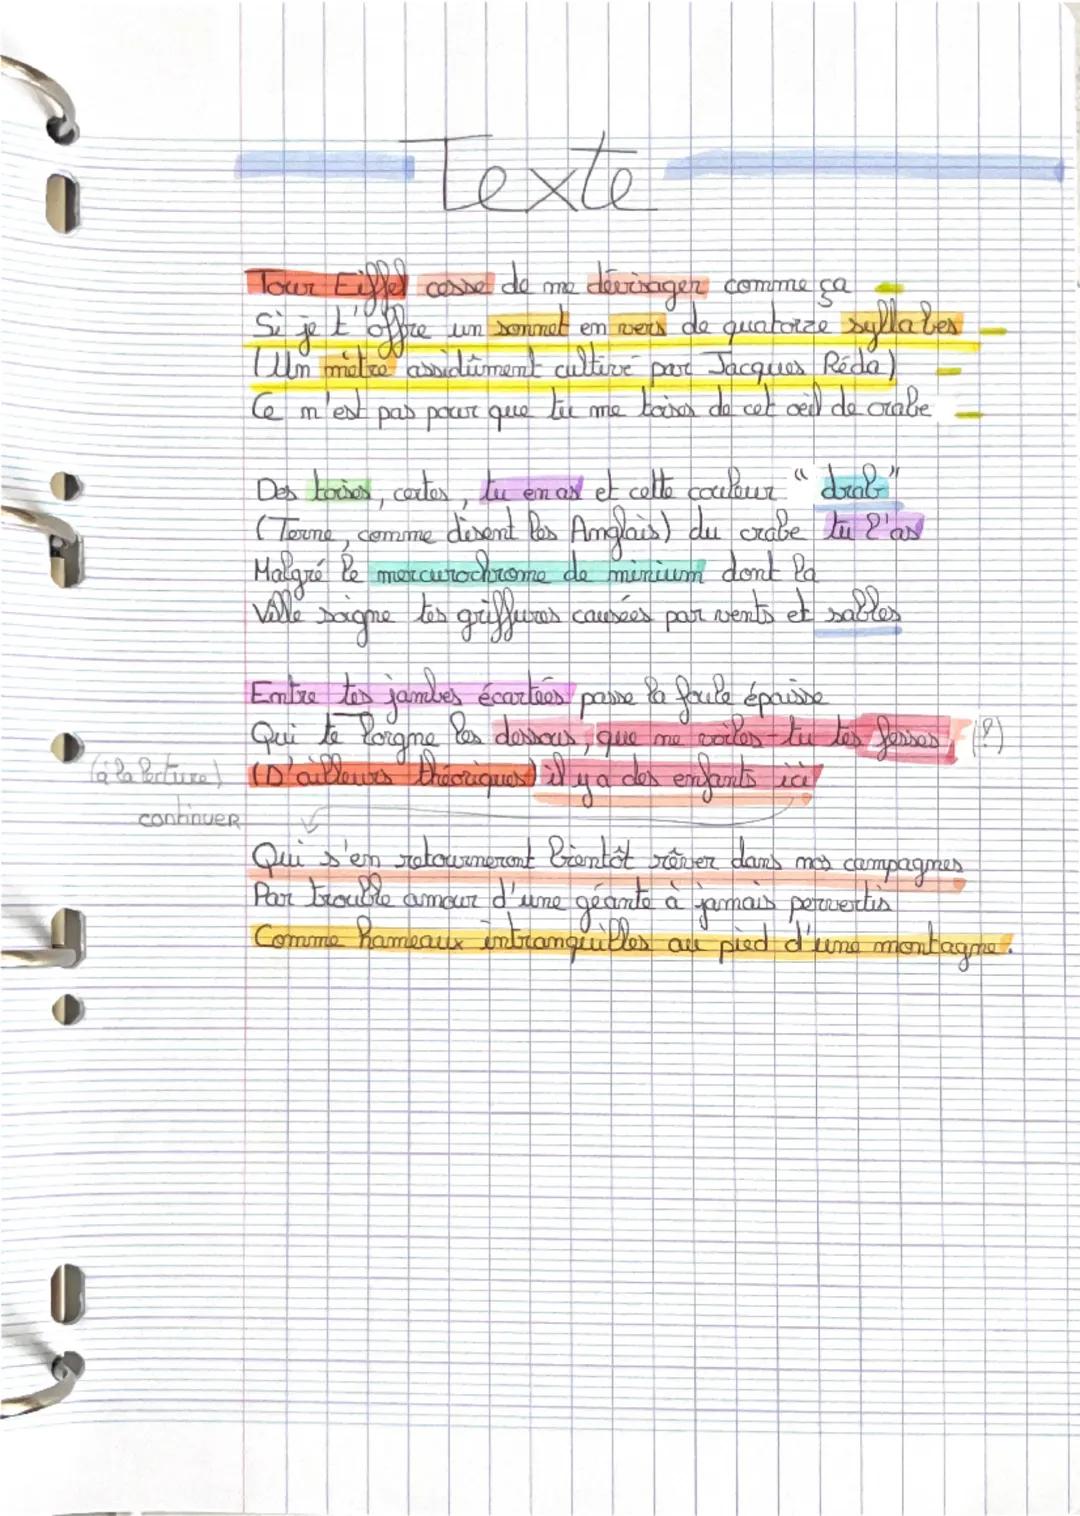 Texte
Tour Eiffel cesse de me dévisager comme ça
Si je t'offre un sonnet en vers de quatorze syllabes
(Un mètre assidûment cultivé par Jacques Réda)
Ce n'est pas pour que tu me toises de cet oeil de crabe
Des toises, certes, tu en as et cette couleur "drab"
(Terne, comme disent les Anglais) du crabe tu l'as
Malgré le mercurochrome de minium dont la
Ville soigne tes griffures causées par vents et sables
Entre tes jambes écartées passe la foule épaisse
Qui te lorgne les dessous, que ne voiles-tu tes fesses, (?)
(à la lecture) (D'ailleurs théoriques) il y a des enfants ici
continuer
Qui s'en retourneront bientôt rêver dans nos campagnes
Par trouble amour d'une géante à jamais pervertis
Comme hameaux intranquilles au pied d'une montagne.